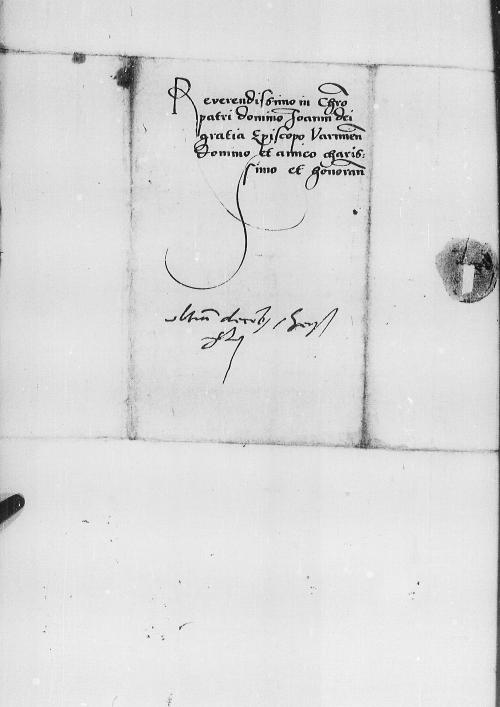 Reverendissimo in Chro
patri domino Joanni dei
gratia Episcopo Varmien
Domino et amico charis:
simo et honoran